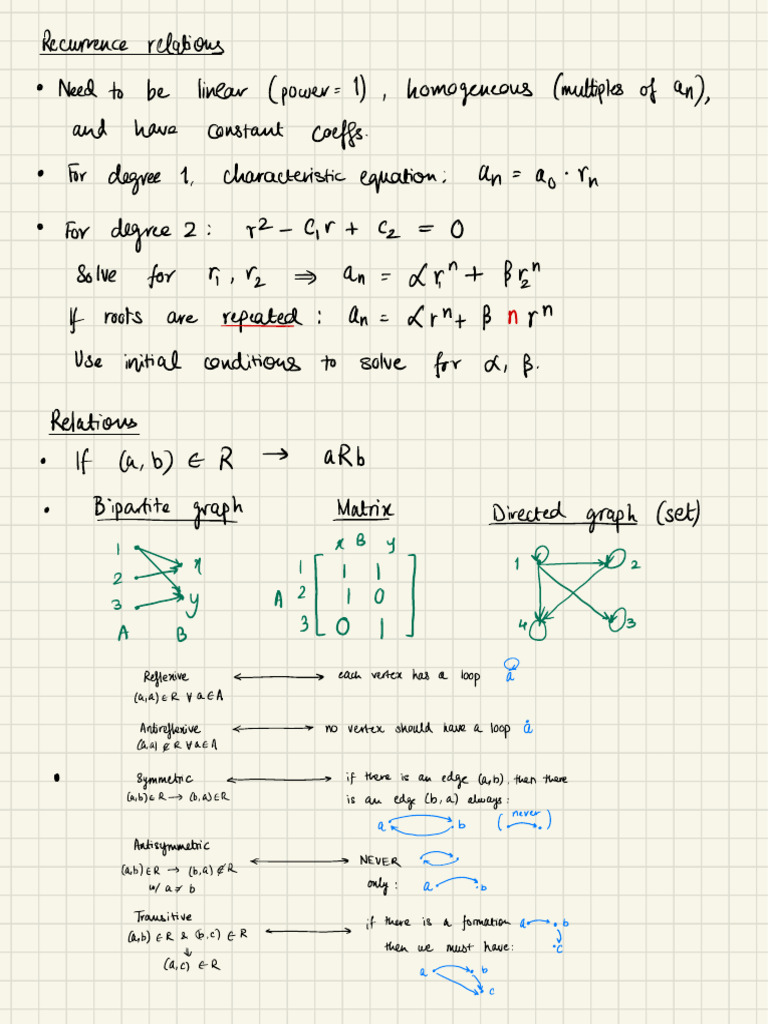 Recurrence relations
• Need to be linear (power = 1), homogeneous (multiples of aₙ),
and have constant coeffs.
• For degree 1, characteristic equation: aₙ = a₀ · rₙ
• For degree 2: r² - C₁r + C₂ = 0
Solve for r₁, r₂ ⇒ aₙ = αr₁ⁿ + βr₂ⁿ
If roots are repeated: aₙ = αrⁿ + β n rⁿ
Use initial conditions to solve for α, β.
Relations
• If (a,b) ∈ R → aRb
• Bipartite graph Matrix Directed graph (set)
1 2 3 x y A B
x B y
1 1 1
A 2 1 0
3 0 1
1 2
4 3
Reflexive ↔ each vertex has a loop a
(a,a) ∈ R ∀ a ∈ A
Antireflexive ↔ no vertex should have a loop a
(a,a) ∉ R ∀ a ∈ A
• Symmetric ↔ if there is an edge (a,b), then there
(a,b) ∈ R → (b,a) ∈ R is an edge (b,a) always:
a b (never)
Antisymmetric
(a,b) ∈ R → (b,a) ∉ R ↔ NEVER
w/ a ≠ b only: a b
Transitive ↔ if there is a formation a b
(a,b) ∈ R & (b,c) ∈ R then we must have: c
↓
(a,c) ∈ R a b
c